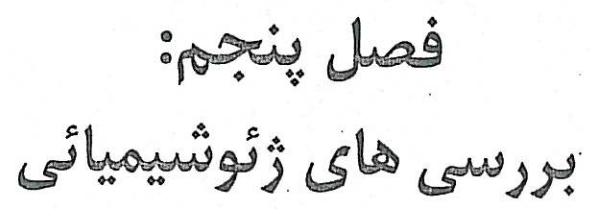 فصل پنجم:
بررسی های ژئوشیمیائی